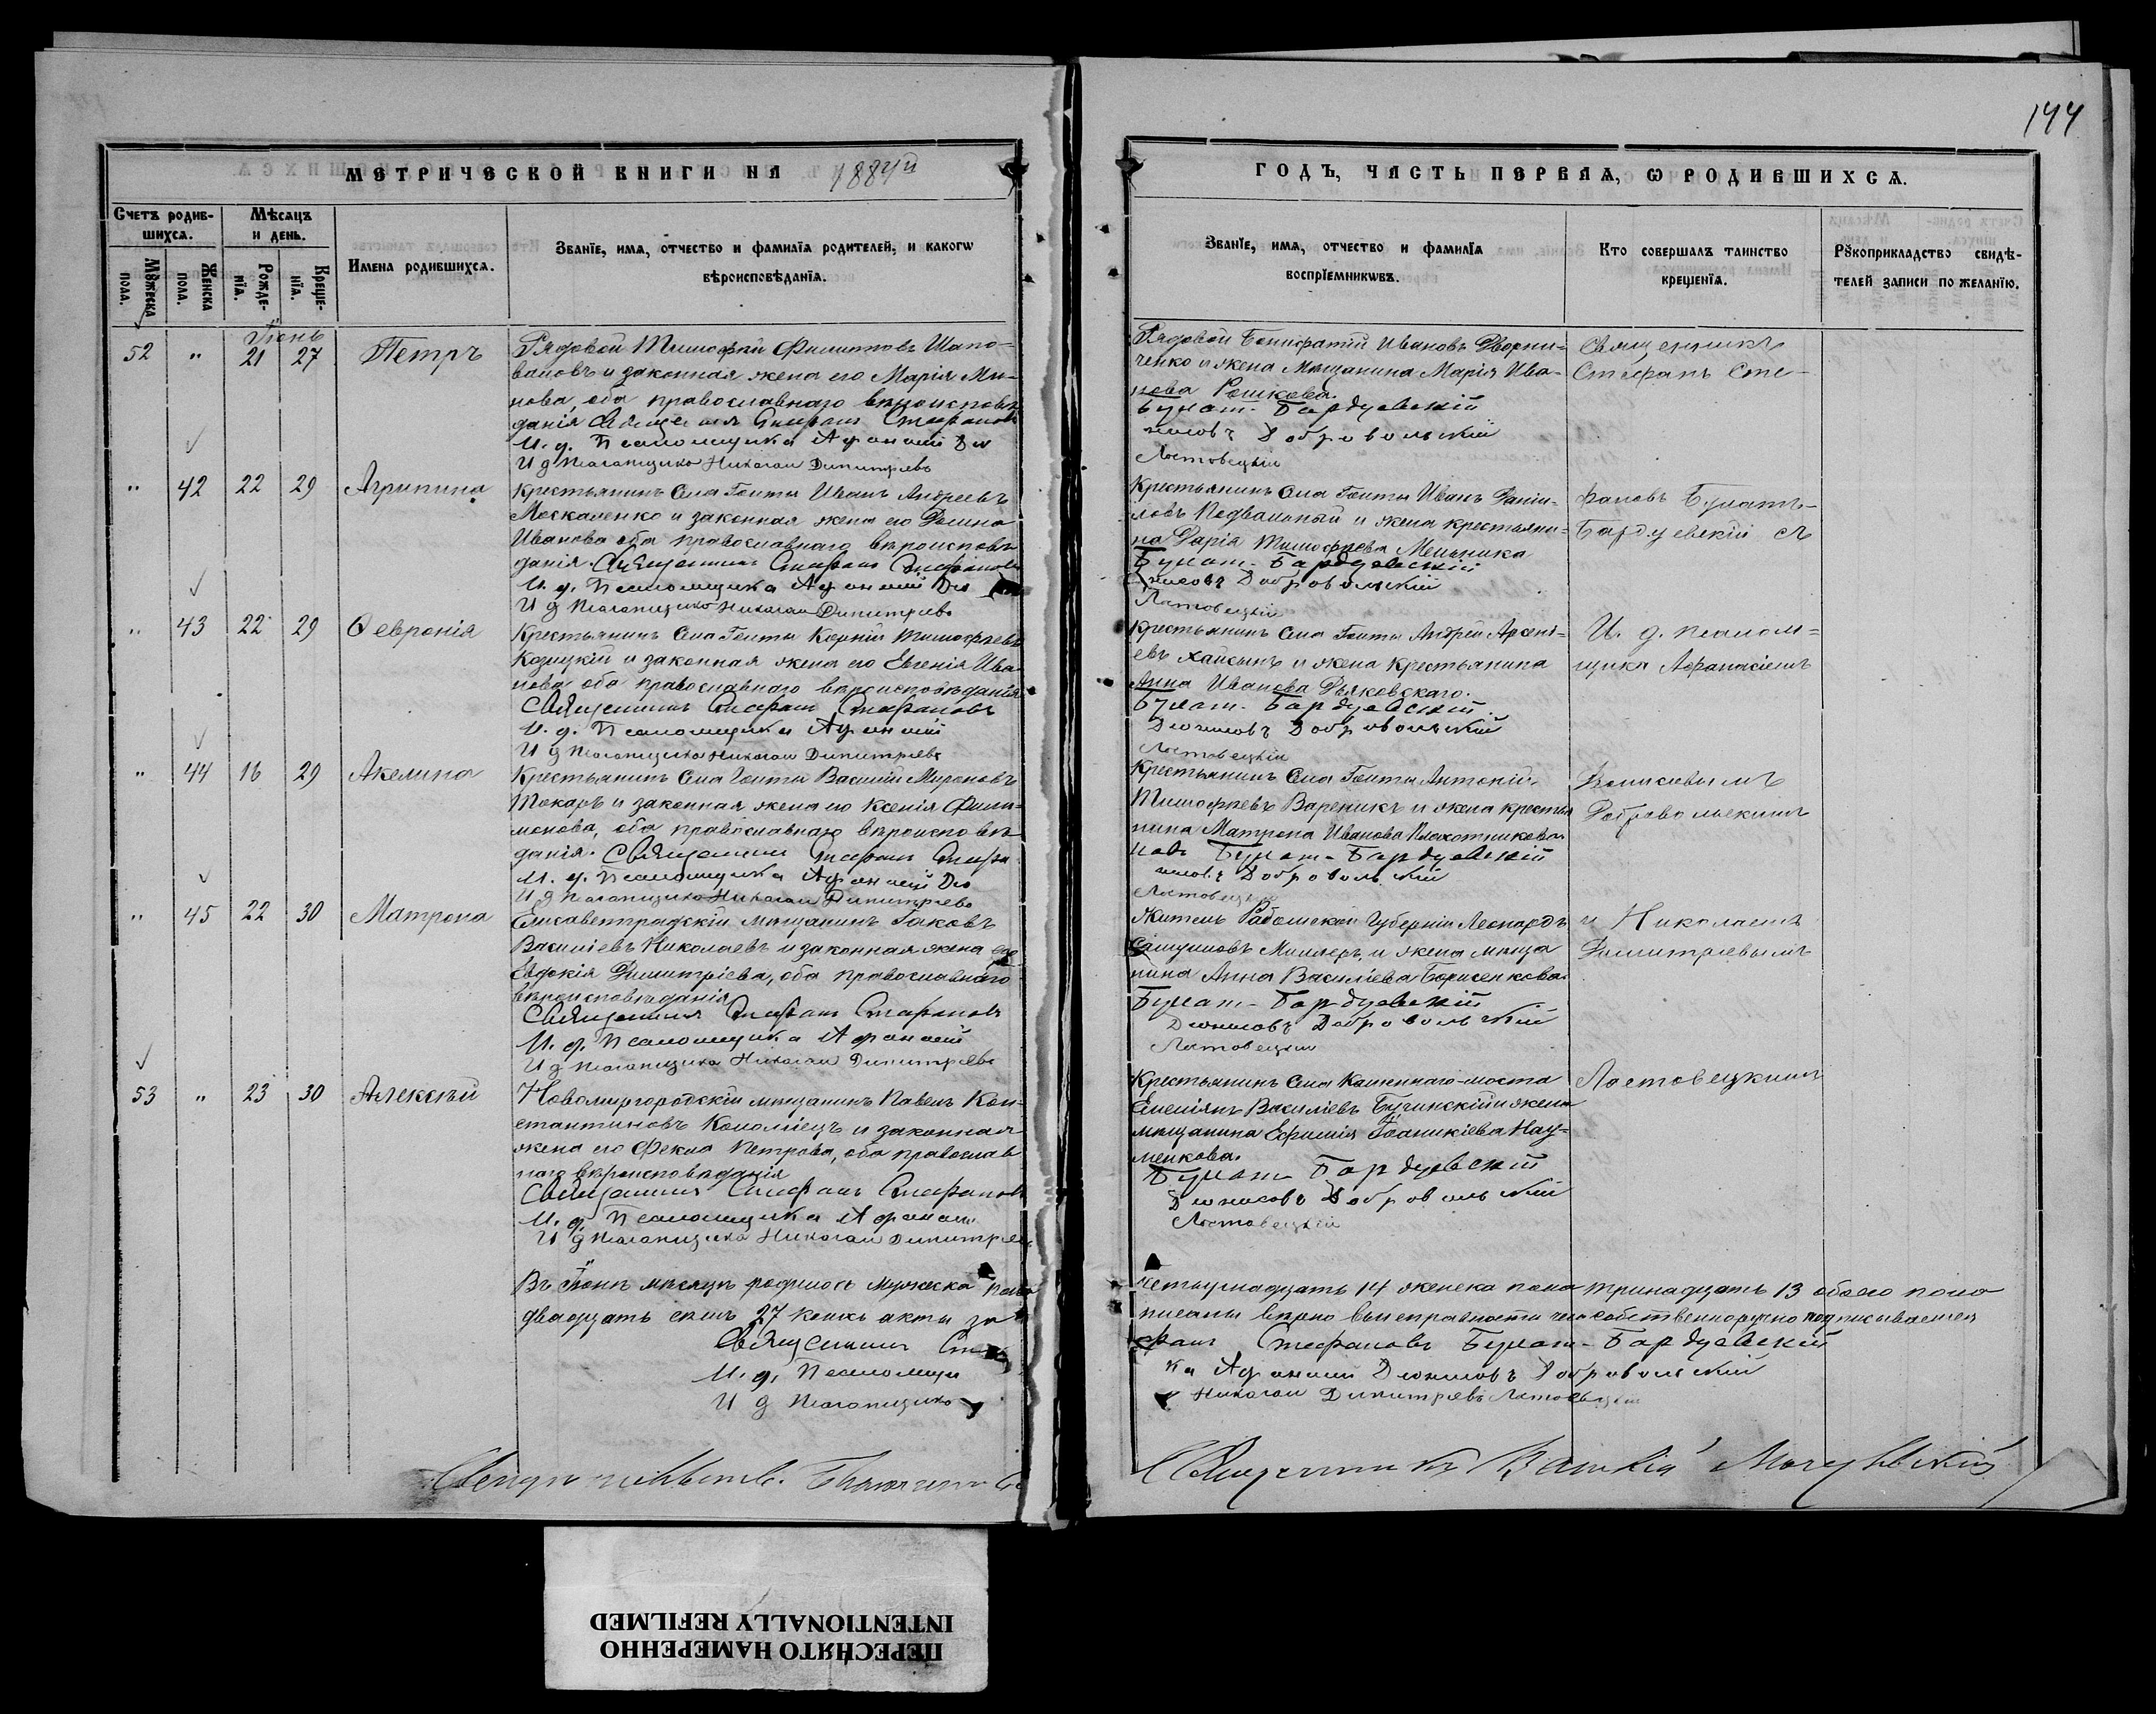 144
МЕТРИЧЕСКОЙ КНИГИ НА 1884й
ГОДЪ, ЧАСТЬ ПЕРВАЯ, Ѡ РОДИВШИХСѦ.
Счетъ родив-
шихсѧ.
Мѣсѧцъ
и день.
Мꙋжеска
пола.
Женска
пола.
Рожде-
нїѧ.
Креще-
нїѧ.
Имена родившихсѧ.
Званїе, имѧ, отчество и фамилїѧ родителей, и какогѡ
вѣроисповѣданїѧ.
Званїе, имѧ, отчество и фамилїѧ
воспрїемникѡвъ.
Кто совершалъ таинство
крещенїѧ.
Рꙋкоприкладство свидѣ-
телей записи по желанїю.
Іюнь
52 " 21 27 Петръ
Рядовой Тимофей Филиповъ Шапо-
валовъ и законная жена его Марія Ми-
нова, оба православнаго вѣроисповѣ-
данія Священникъ Стефанъ Стефановъ
И. д. Псаломщика Афанасій Дио
И д Псаломщика Николай Димитріевъ
Рядовой Бонифатій Ивановъ Дворни-
ченко и жена мѣщанина Марія Ива-
нова Рошкова.
Булат-Бардуевскій
нисовъ Добровольскій
Лотовецкій
Священникъ
Стефанъ Сте-
" 42 22 29 Агрипина
Крестьянинъ Села Гонты Иванъ Андреевъ
Москаленко и законная жена его Домна
Иванова оба православнаго вѣроисповѣ-
данія. Священникъ Стефанъ Стефановъ
И. д. Псаломщика Афанасій Дио
И д Псаломщика Николай Димитріевъ
Крестьянинъ Села Гонты Иванъ Даніи-
ловъ Подвальный и жена крестьяни-
на Дарія Тимофеева Мельника
Булат-Бардуевскій
нисовъ Добровольскій
Лотовецкій
фановъ Булатъ-
Бардуевскій съ
" 43 22 29 Ѳевронія
Крестьянинъ Села Гонты Корній Тимофеевъ
Козицкій и законная жена его Евгенія Ива-
нова оба православнаго вѣроисповѣданія
Священникъ Стефанъ Стефановъ
И. д. Псаломщика Афанасій
И д Псаломщика Николай Димитріевъ
Крестьянинъ Села Гонты Андрей Арсені-
евъ Хайсынъ и жена крестьянина
Анна Иванова Дьяковскаго.
Булат-Бардуевскій.
Дионисовъ Добровольскій
Лотовецкій
И. д. псалом-
щика Афанасіемъ
" 44 16 29 Акелина
Крестьянинъ Села Гонты Василій Мироновъ
Токаръ и законная жена его Ксенія Фили-
монова, оба православнаго вѣроисповѣ-
данія. Священникъ Стефанъ Стефа
И. д. Псаломщика Афанасій Дио
И д Псаломщика Николай Димитріевъ
Крестьянинъ Села Гонты Антоній
Тимофеевъ Вареникъ и жена крестья
нина Матрона Иванова Плохотникова
новъ Булат-Бардуевскій
нисовъ Добровольскій
Лотовецкій
Дионисовымъ
Добровольскимъ
" 45 22 30 Матрона
Елисаветградскій мѣщанинъ Іаковъ
Василіевъ Николаевъ и законная жена его
Евдокія Димитріева, оба православнаго
вѣроисповѣданія
Священникъ Стефанъ Стефановъ
И. д. Псаломщика Афанасій
И д Псаломщика Николай Димитріевъ
Житель Радомской Губерніи Леонардъ
Миллеръ, и жена мѣща
нина Анна Василіева Борисенкова
Булат-Бардуевскій
Дионисовъ Добровольскій
Лотовецкій
и Николаемъ
Димитріевымъ
53 " 23 30 Алексѣй
Новомиргородскій мѣщанинъ Павелъ Кон-
стантиновъ Коломіецъ и законная
жена его Фекла Петрова, оба православ
наго вѣроисповѣданія
Священникъ Стефанъ Стефановъ
И. д. Псаломщика Афанасій
И д Псаломщика Николай Димитріевъ
Крестьянинъ Села Каменнаго-моста
Емеліянъ Василіевъ Бучинскій и жена
мѣщанина Ефимія Іоаникіева Нау-
менкова.
Булат-Бардуевскій
Дионисовъ Добровольскій
Лотовецкій
Лотовецкимъ
Въ Іюнѣ мѣсяцѣ родилось мужеска пола четырнадцать 14 женска пола тринадцать 13 обоего пола
двадцать семь 27 коихъ акты записаны вѣрно въ исправности чего собственноручно подписываемся
Священникъ Стефанъ Стефановъ Булат-Бардуевскій
И. д. Псаломщика Афанасій Дионисовъ Добровольскій
И д Псаломщика Николай Димитріевъ Лотовецкій
Священникъ
ПЕРЕСНЯТО НАМЕРЕННО
INTENTIONALLY REFILMED